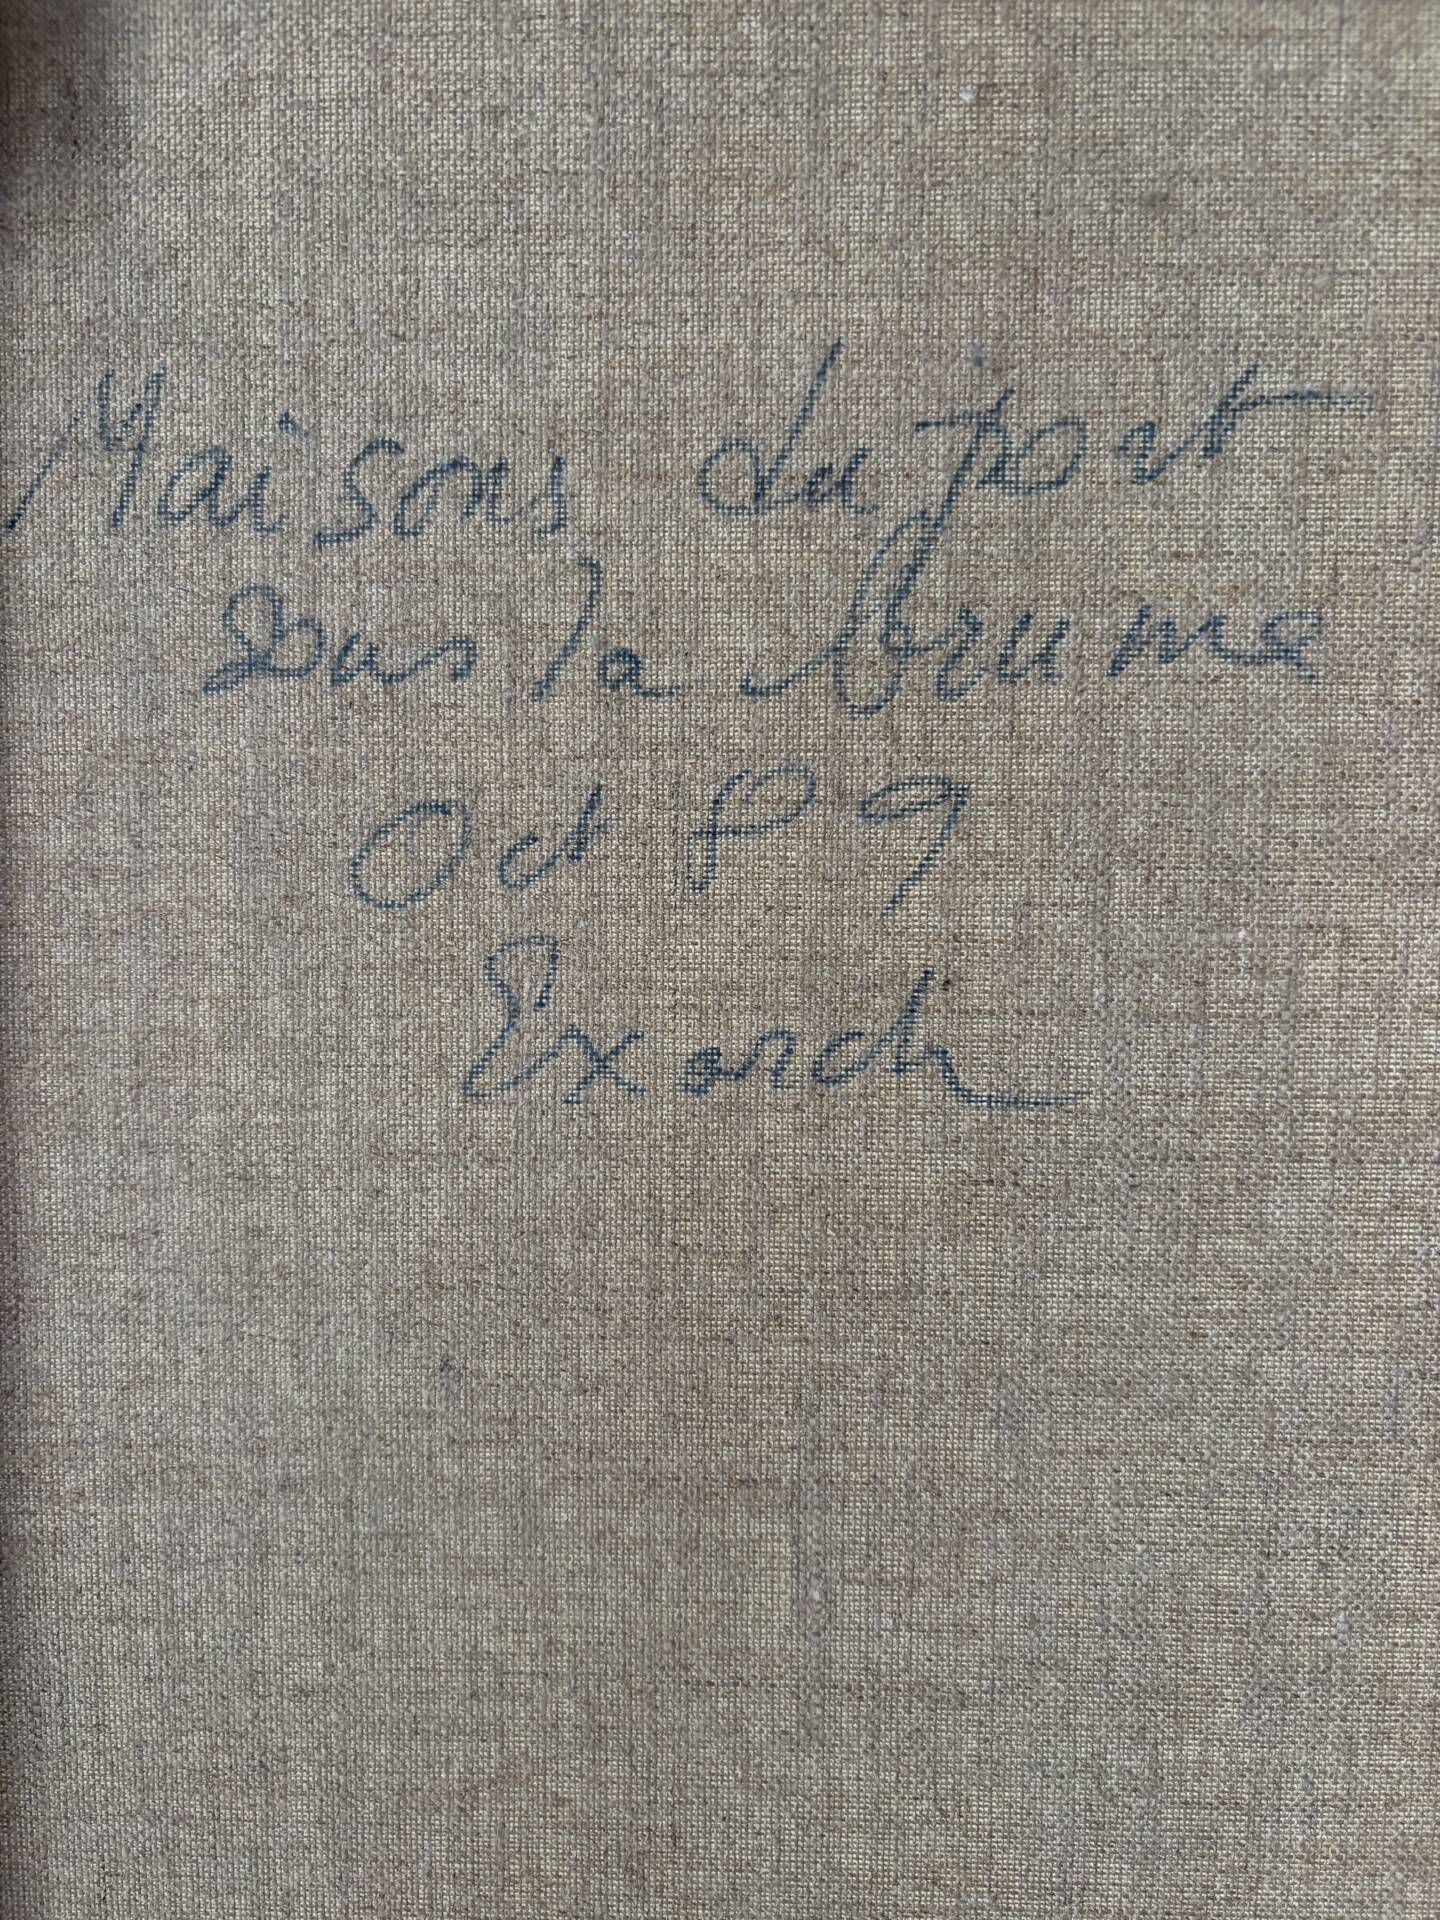 Maisons du port
sous la brume
Oct 89
Exarch